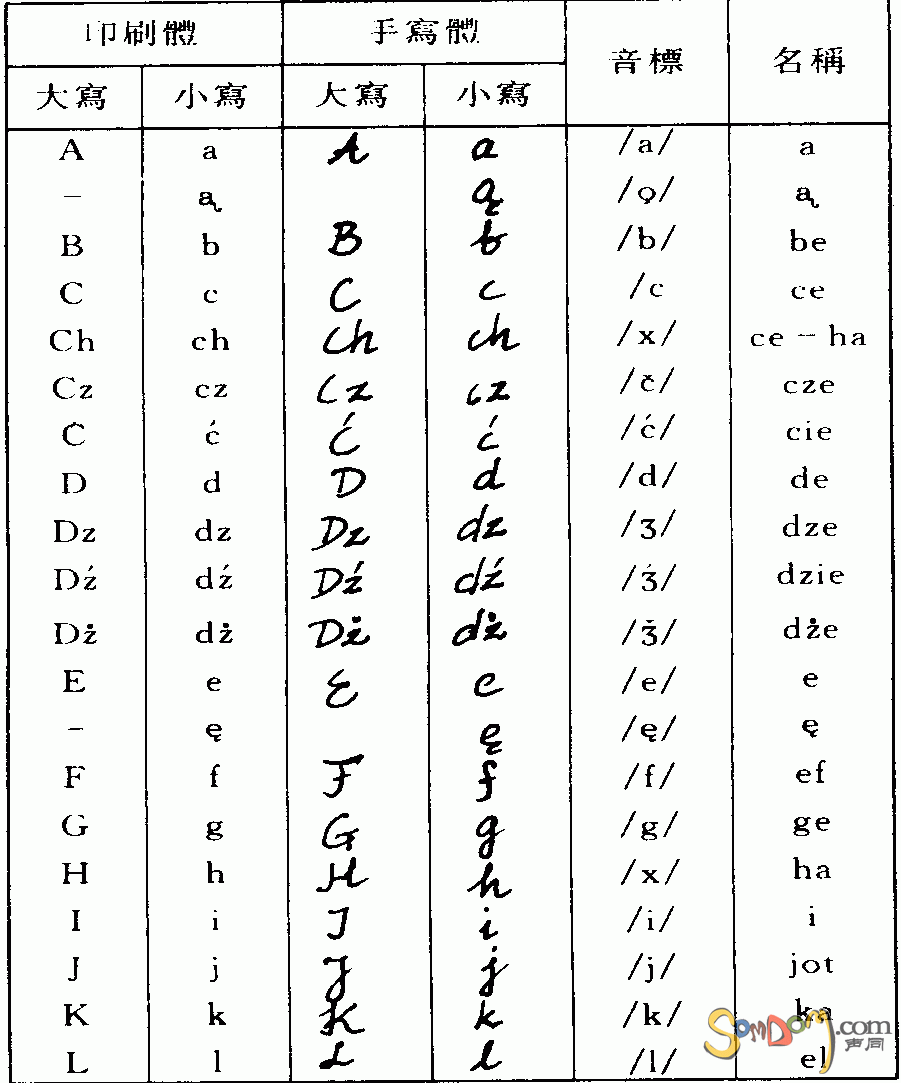 印刷體 手寫體 音標 名稱
大寫 小寫 大寫 小寫
A a A a /a/ a
– ą ą /ǫ/ ą
B b B b /b/ be
C c C c /c ce
Ch ch Ch ch /x/ ce – ha
Cz cz Cz cz /č/ cze
C ć Ć ć /ć/ cie
D d D d /d/ de
Dz dz Dz dz /ʒ/ dze
Dź dź Dź dź /ʒ́/ dzie
Dż dż Dż dż /ǯ/ dże
E e E e /e/ e
– ę ę /ę/ ę
F f F f /f/ ef
G g G g /g/ ge
H h H h /x/ ha
I i I i /i/ i
J j J j /j/ jot
K k K k /k/ ka
L l L l /l/ el
SomDom.com
声同